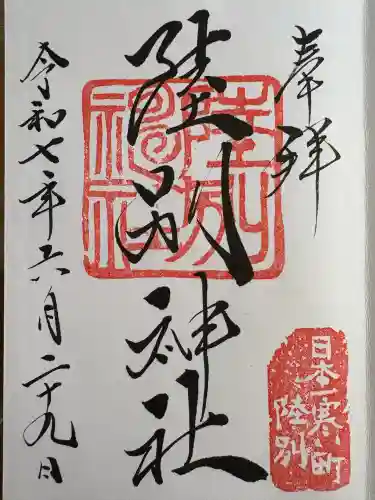 奉拝
陸別神社
陸別神社
令和七年六月二十九日
日本一寒い町
陸別